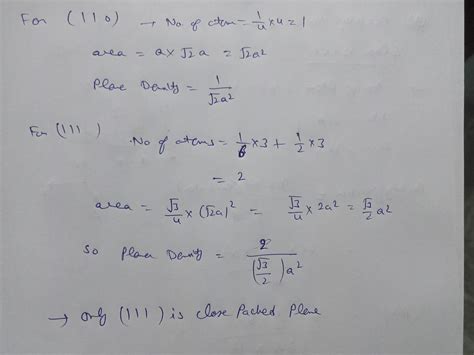 For (110) → No. of atom = 1/4 × 4 = 1
area = a × √2a = √2a²
Plane Density = 1/√2a²
For (111)
No of atoms = 1/6 × 3 + 1/2 × 3
= 2
area = √3/4 × (√2a)² = √3/4 × 2a² = √3/2 a²
So Planer Density = 2/(√3/2)a²
→ only (111) is close Packed Plane